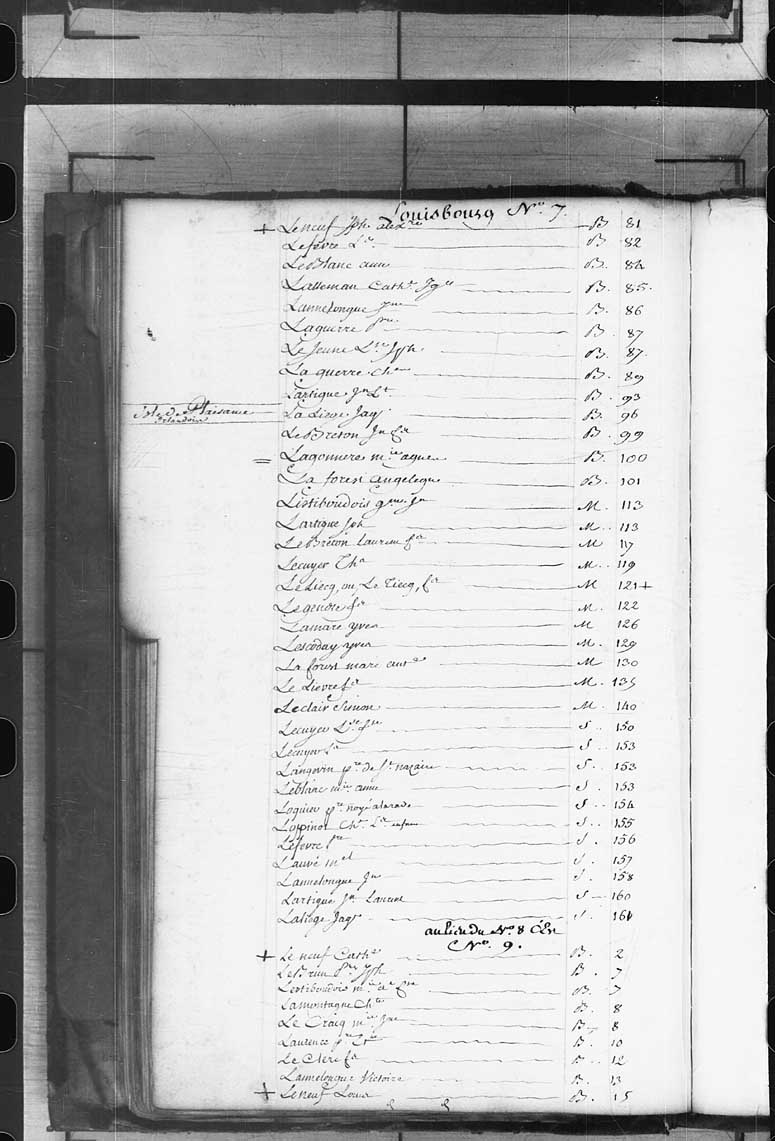 Louisbourg No. 7.
+ Le neuf Jph. alexre B 81
Lefevre Ls. B. 82
Le Blanc anne B. 84
Lalleman Cath. B. 85.
Lannelongue B. 86
Laguerre Pre. B. 87
Le Jeune Jph. B. 87.
La guerre Che. B. 89
Lartigue Jn Lt. B. 93
Isle de Plaisance
La Liege Jaqs B. 96
Le Breton Jn B. 99
= Lagonnere mie B. 100
La forest angelequ B. 101
Listiboudois Jn M. 113
Lartigue Jph M. 113
Le Breton laurens M 117
Lecuyer Ths M. 119
Le Liecq, ou Le Tiecq, M 121+
Le gendre M. 122
Lamare yves M 126
Lescoday yves M. 129
La forest marc antne M 130
Le Lievre M. 135
Leclair Simon M. 140
Lecuyer S. 150
Lecuyer S. 153
Langevin pre de St. nazaire S. 153
Leblanc mie anne S. 153
Loquier pre noyé S. 154
Loppinot Chs. enfant S. 155
Lefevre pre S. 156
Lauvé mel S. 157
Lannelongue Jn S. 158
Lartigue Jn S 160
Laliege Jaqs S. 161
au lieu du No. 8
No. 9.
+ Le neuf Cathe B. 2
Le Brun Jph B. 7
Lestiboudois mie B. 7
Lamontagne Che B. 8
Le Craiq mie B. 8
Laurence B. 10
Le Clere B. 12
Lannelongue Victoire B. 13
+ Le neuf Louis B. 15